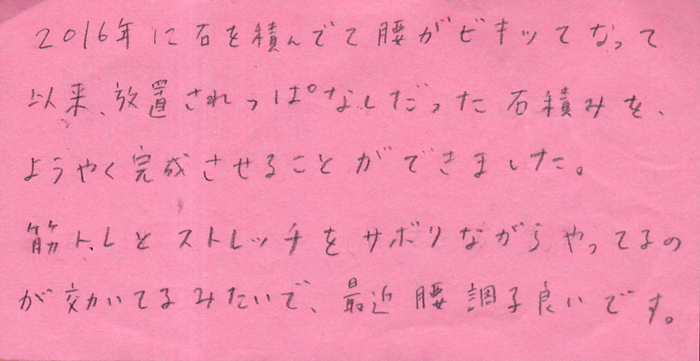 2016年に石を積んでて腰がビキッてなって
以来、放置されっぱなしだった石積みを、
ようやく完成させることができました。
筋トレとストレッチをサボりながらやってるの
が効いてるみたいで、最近腰調子良いです。